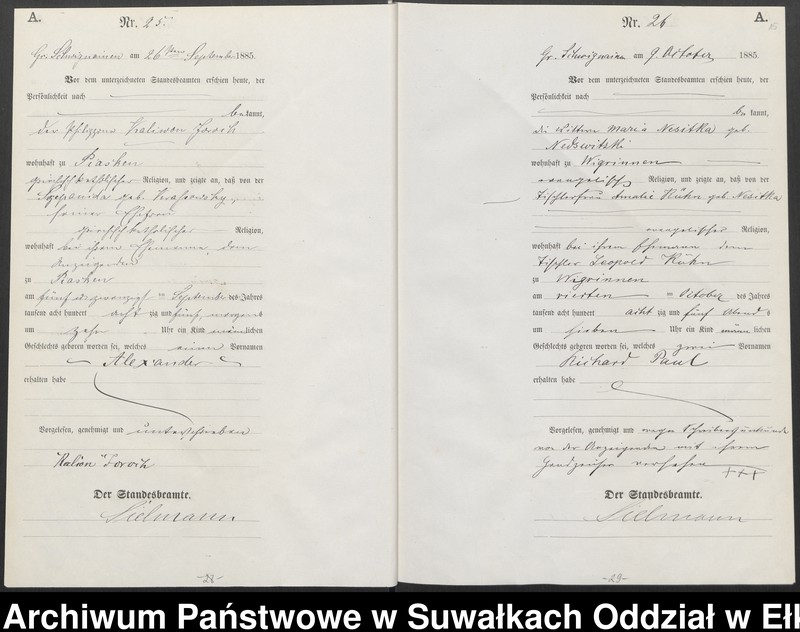 A.
Nr. 25.
Gr. Schwignainen am 26ten September 1885.
Vor dem unterzeichneten Standesbeamten erschien heute, der
Persönlichkeit nach
bekannt,
der Philippone
wohnhaft zu Piasken
Religion, und zeigte an, daß von der
geb.
seiner Ehefrau
Religion,
wohnhaft bei ihrem Ehemanne, dem
Anzeigenden
zu Piasken
am fünf und zwanzigst en September des Jahres
tausend acht hundert acht zig und fünf, morgens
um zehn Uhr ein Kind männlichen
Geschlechts geboren worden sei, welches einen Vornamen
Alexander
erhalten habe
Vorgelesen, genehmigt und unterschrieben
Der Standesbeamte.
Sielmann
-28-
Nr. 26
A.
Gr. Schwignainen am 9. October 1885.
Vor dem unterzeichneten Standesbeamten erschien heute, der
Persönlichkeit nach
be kannt,
die Wittwe Maria Nesitka geb.
Nedswitzki
wohnhaft zu Wigrinnen
evangelischer Religion, und zeigte an, daß von der
Tischlerfrau Amalie Kühn geb. Nesitka
evangelischer Religion,
wohnhaft bei ihrem Ehemann dem
Tischler Leopold Kühn
zu Wigrinnen
am vierten October des Jahres
tausend acht hundert acht zig und fünf Abends
um sieben Uhr ein Kind männ lichen
Geschlechts geboren worden sei, welches zwei Vornamen
Richard Paul
erhalten habe
Vorgelesen, genehmigt und wegen Schreibensunkunde
von der Anzeigenden mit ihrem
Handzeichen versehen +++
Der Standesbeamte.
Sielmann
-29-
Archiwum Państwowe w Suwałkach Oddział w Ełk